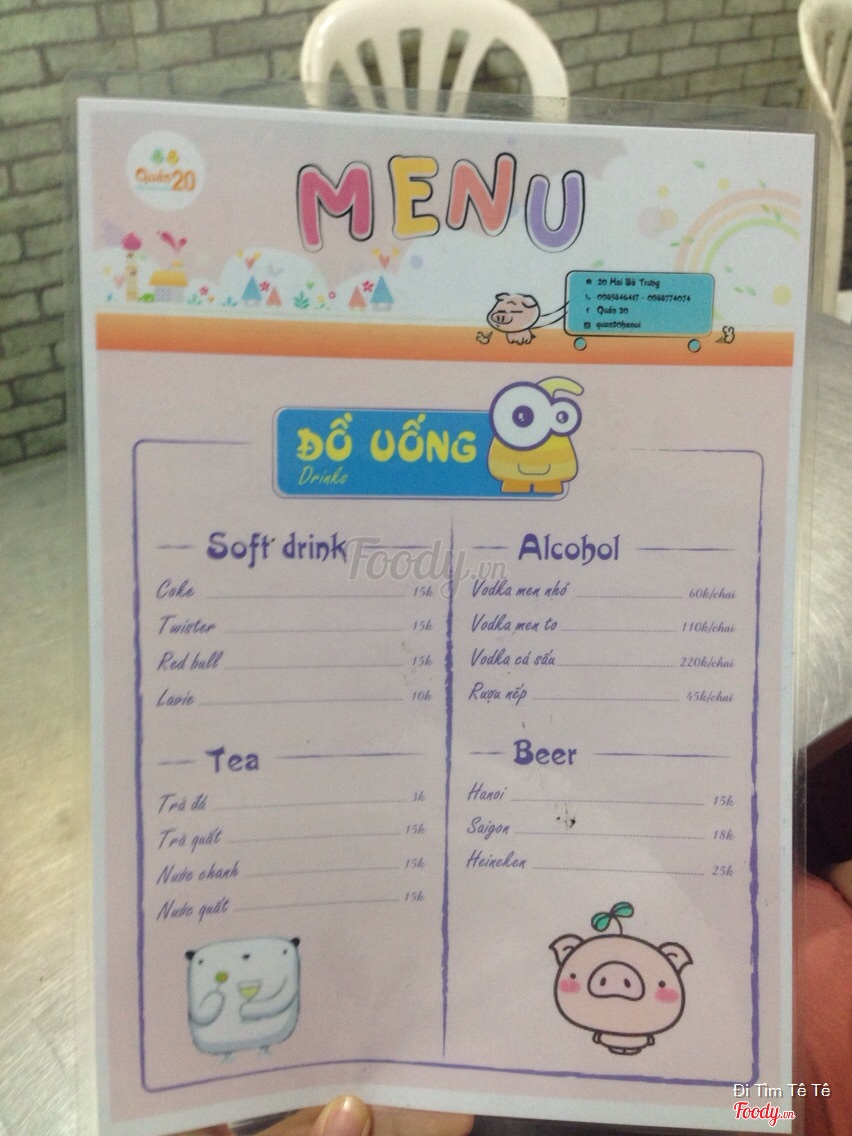 Quán 20
MENU
20 Hai Bà Trưng
0985846417 - 0988774074
Quán 20
quan20hanoi
ĐỒ UỐNG
Drinks
Soft drink
Coke 15k
Twister 15k
Red bull 15k
Lavie 10k
Tea
Trà đá 3k
Trà quất 15k
Nước chanh 15k
Nước quất 15k
Alcohol
Vodka men nhỏ 60k/chai
Vodka men to 110k/chai
Vodka cá sấu 220k/chai
Rượu nếp 45k/chai
Beer
Hanoi 15k
Saigon 18k
Heineken 25k
Foody.vn
Đi Tìm Tê Tê
Foody.vn